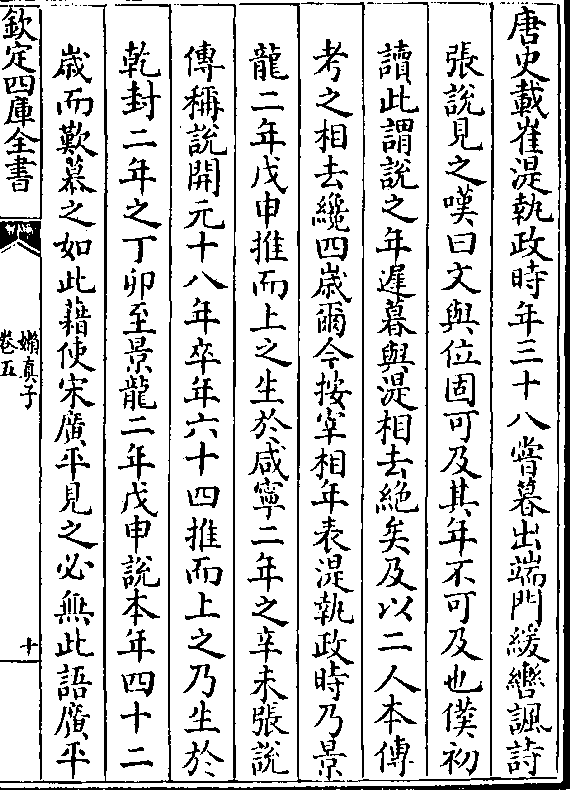 唐史載崔湜執政時年三十八嘗暮出端門緩轡諷詩
張說見之嘆曰文與位固可及其年不可及也僕初
讀此謂說之年遲暮與湜相去絶矣及以二人本傳
考之相去纔四歳爾今按宰相年表湜執政時乃景
龍二年戊申推而上之生於咸寧二年之辛未張說
傳稱說開元十八年卒年六十四推而上之乃生於
乾封二年之丁卯至景龍二年戊申說本年四十二
歳而歎慕之如此藉使宋廣平見之必無此語廣平
欽定四庫全書
嬾真子
卷五
十